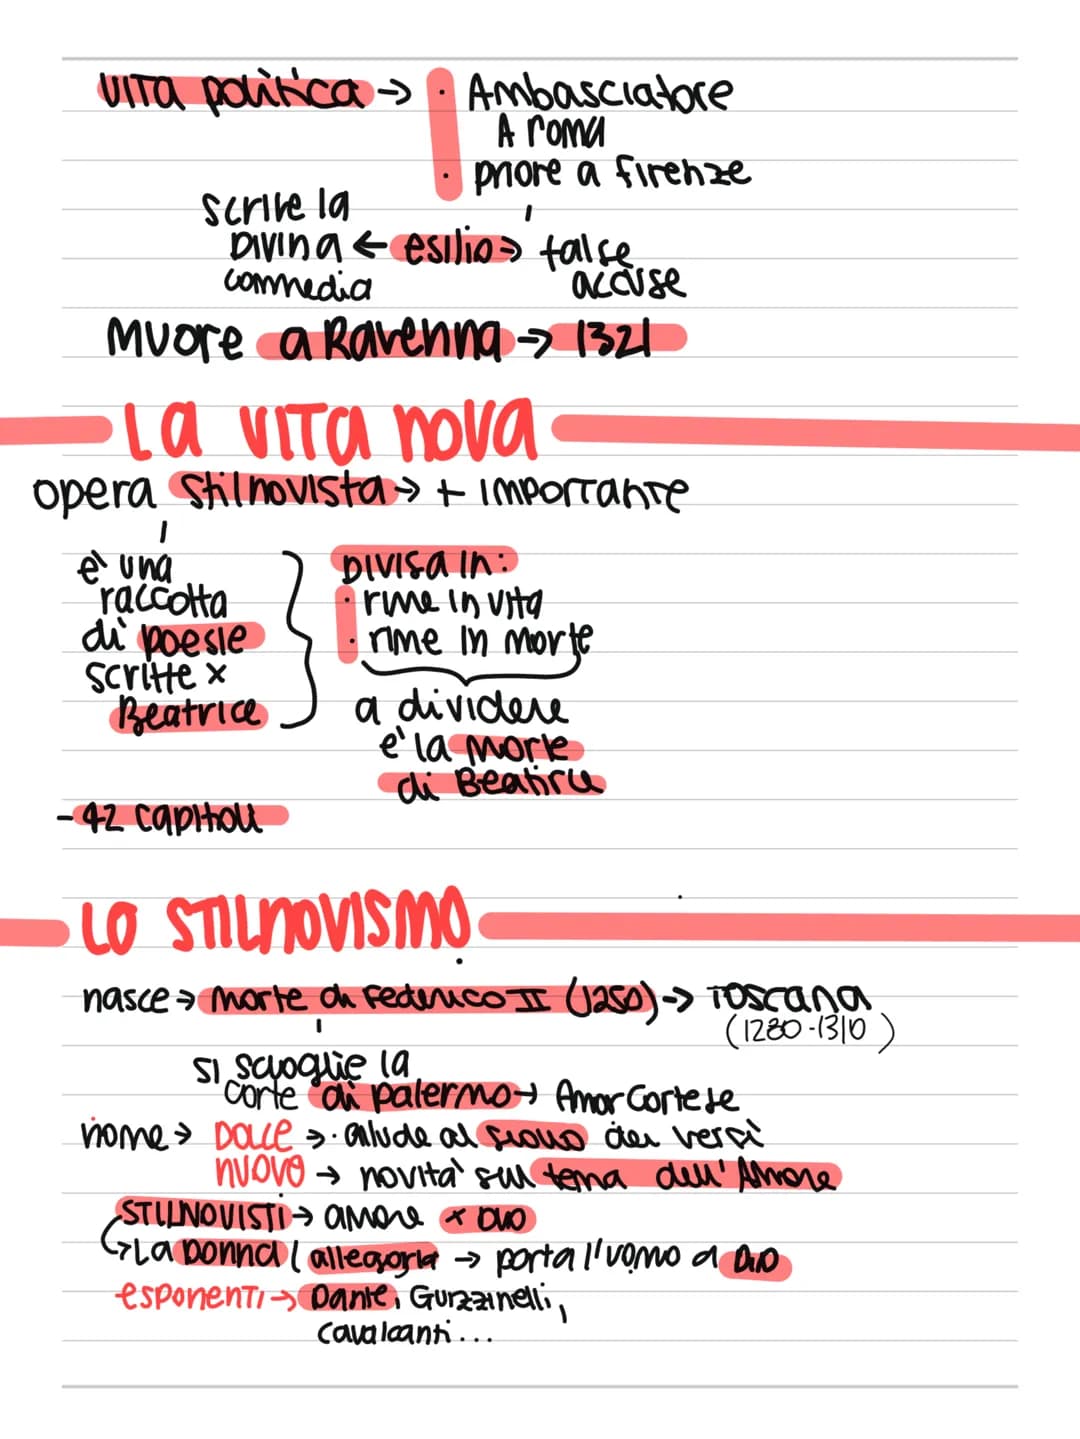 VITA politica → · Ambasciatore
A roma
· priore a firenze
scrive la
Divina ← esilio → false
commedia accuse
Muore a Ravenna → 1321
La VITA nova
opera stilnovista → + importante
è una
raccotta
di poesie
scritte x
Beatrice
Divisa in:
· rime in vita
· rime in morte
a dividere
e' la morte
di Beatrice
- 42 capitoli
LO STILNOVISMO
nasce → morte di Federico II (1250) → Toscana
(1280-1310)
si scioglie la
corte di palermo → Amor Cortese
nome > DOLCE → · allude al suono dei versi
NUOVO → novità sul tema dell'Amore
STILNOVISTI → amore x DIO
↳ La Donna ( allegoria → porta l'uomo a DIO
esponenti → Dante, Guizzinelli,
Cavalcanti...